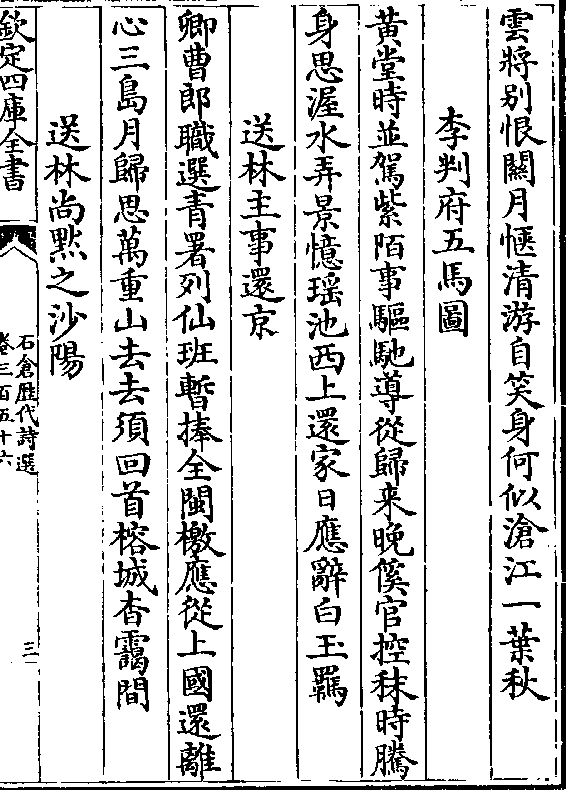 雲將别恨闗月愜清游自笑身何似滄江一葉秋
李判府五馬圖
黄堂時並駕紫陌事驅馳導從歸来晚傒官控秣時騰
身思渥水弄景憶瑶池西上還家日應辭白玉羈
送林主事還京
卿曹郎職選青署列仙班暫捧全閩檄應從上國還離
心三島月歸思萬重山去去須回首榕城杳靄間
送林尚黙之沙陽
欽定四庫全書
石倉歴代詩選
卷三百五十六
三